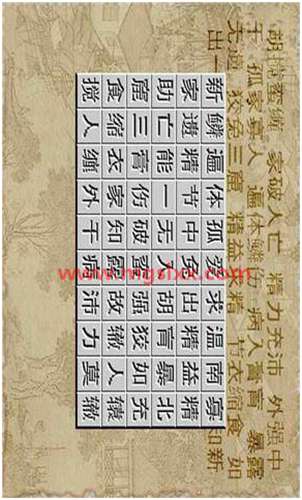 胡搅蛮缠 家破人亡 精力充沛 外强中
干 孤家寡人 遍体鳞伤 病入膏肓 暴露
无遗 狡兔三窟 精益求精 节衣缩食 如
出一 知新
新鳞遍体孤爱求温南寡
家遗精节中兔出精益精
助亡能一无入胡肓暴北
窟三膏伤破蛮强狡如充
食缩衣家知露故辙人辕
搅人缠外干病沛力莫辙
www.mgshxx.com